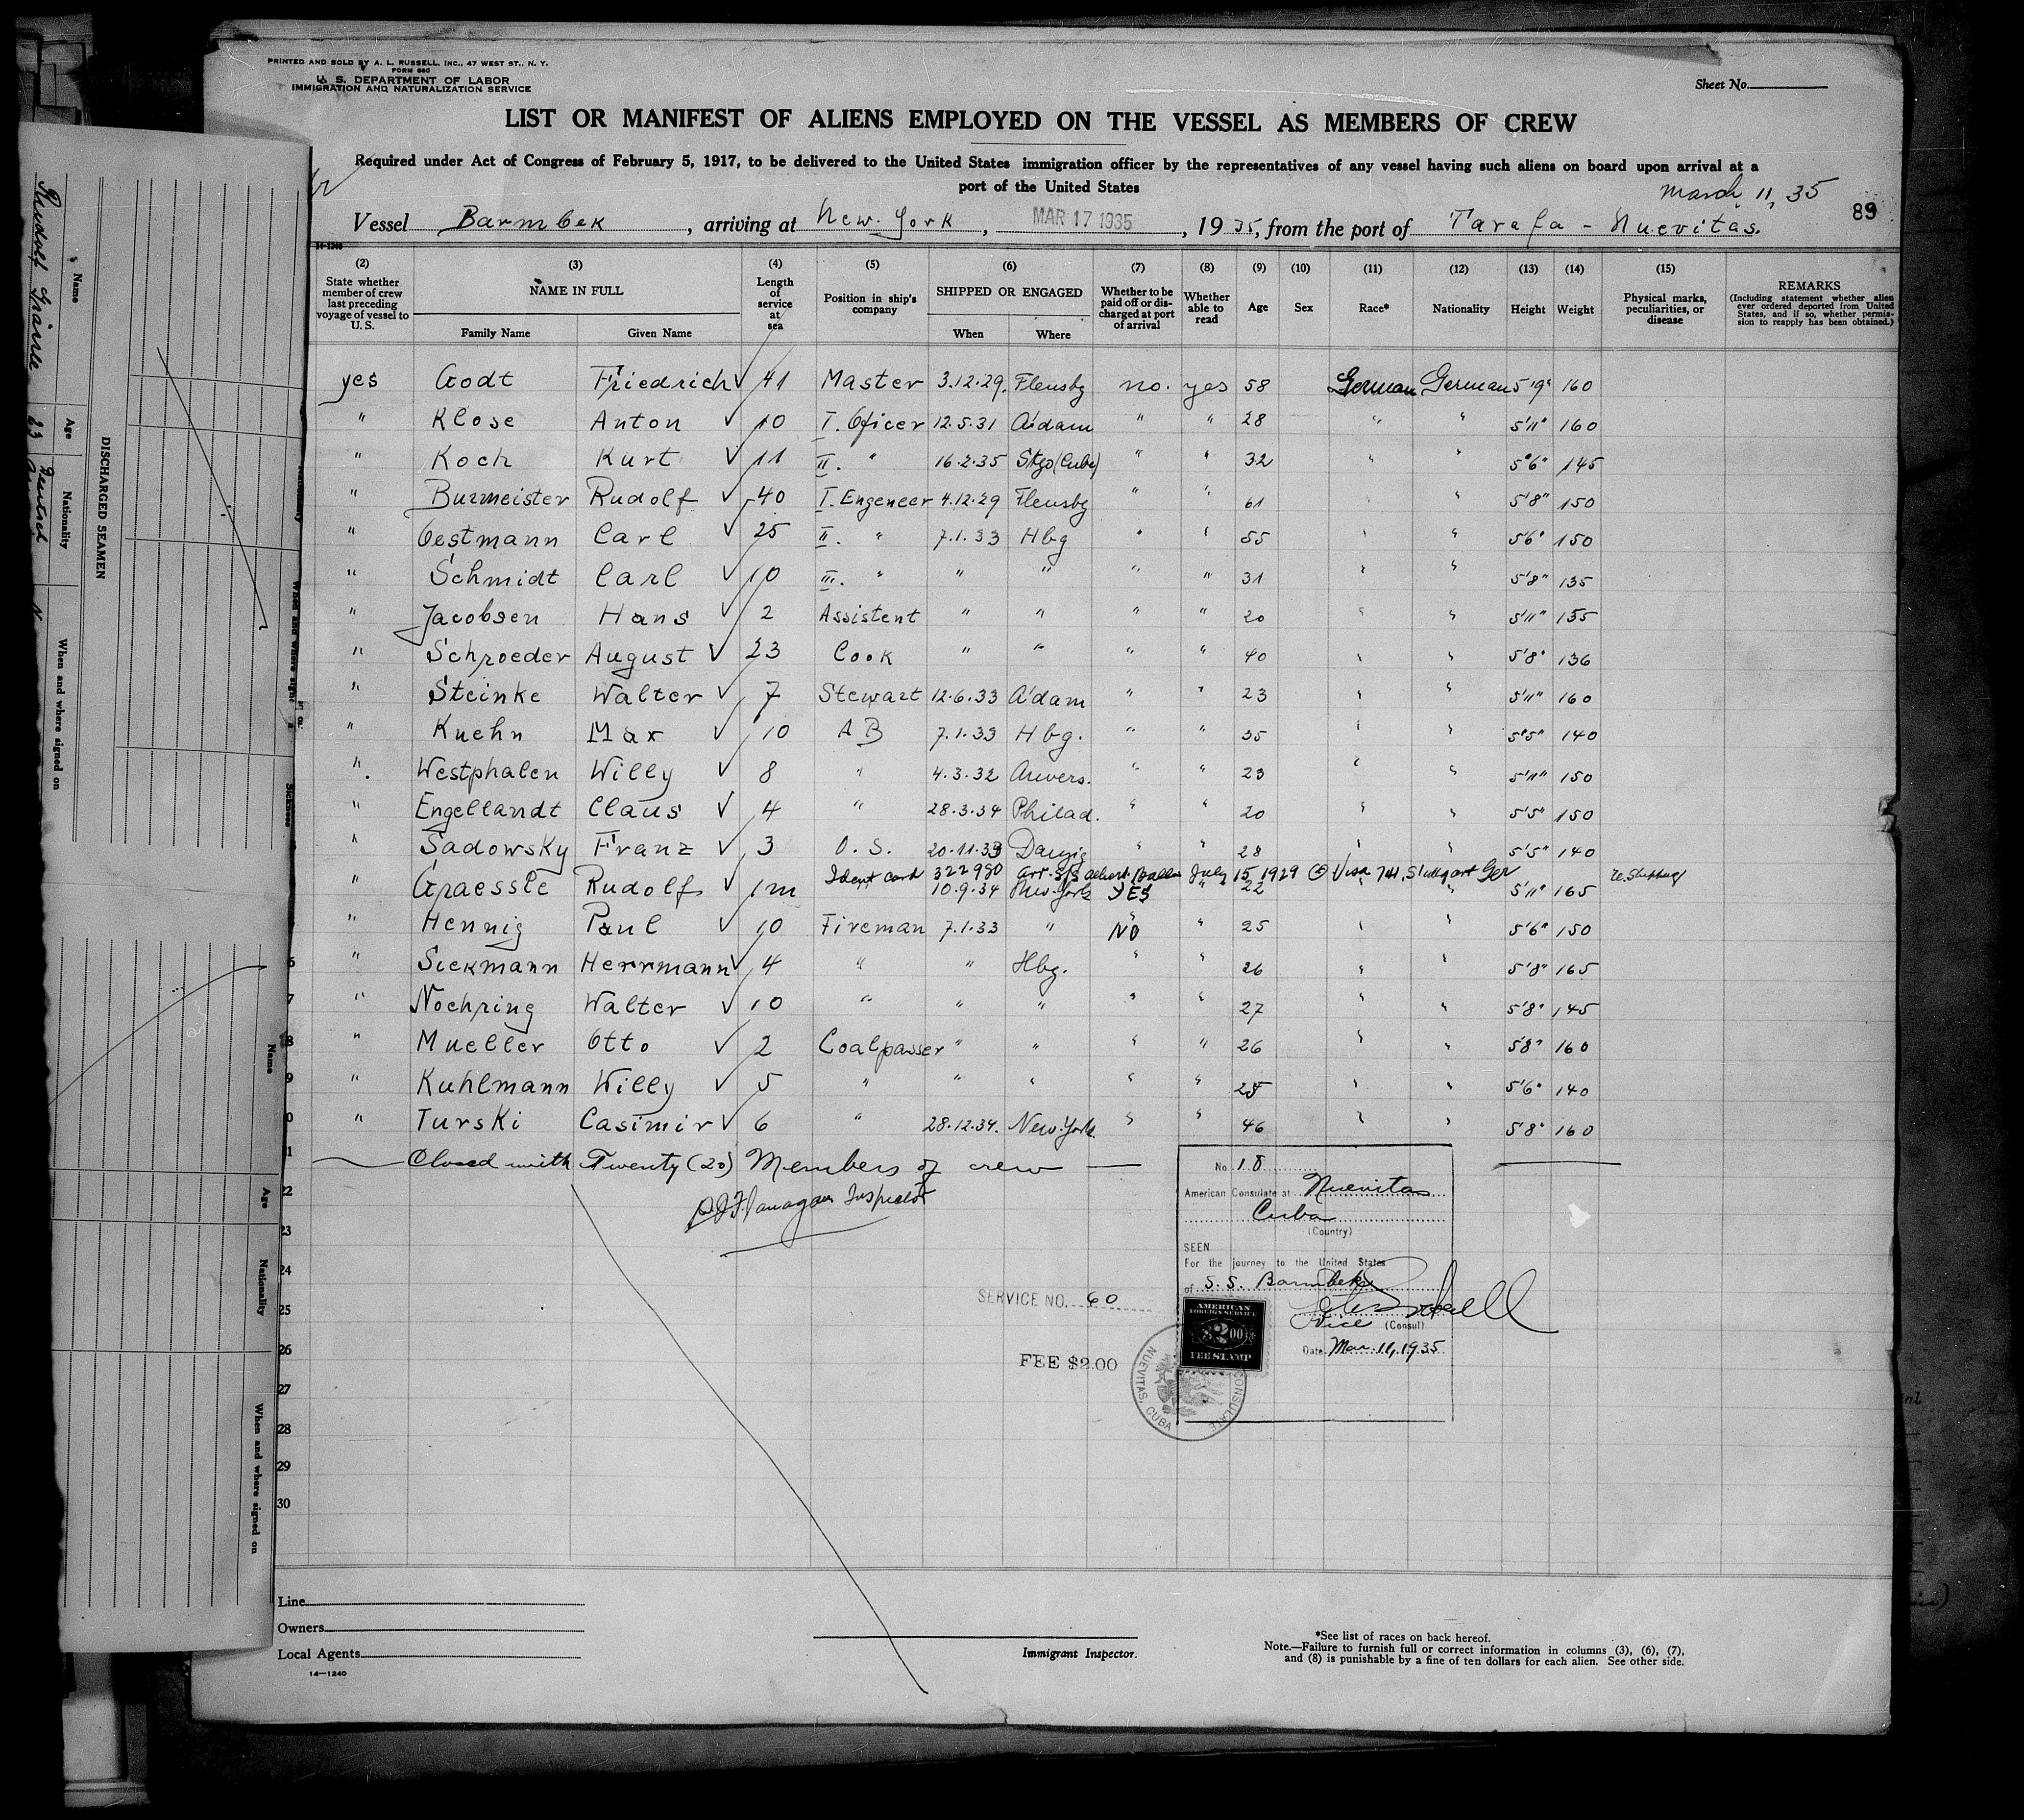 PRINTED AND SOLD BY A. L. RUSSELL, INC., 47 WEST ST., N. Y.
FORM 680
U. S. DEPARTMENT OF LABOR
IMMIGRATION AND NATURALIZATION SERVICE
Sheet No.
LIST OR MANIFEST OF ALIENS EMPLOYED ON THE VESSEL AS MEMBERS OF CREW
Required under Act of Congress of February 5, 1917, to be delivered to the United States immigration officer by the representatives of any vessel having such aliens on board upon arrival at a
port of the United States
March, 11, 35
89
Vessel Barmbek, arriving at New-York, MAR 17 1935, 1935, from the port of Tarafa - Nuevitas.
14-1240
(2) (3) (4) (5) (6) (7) (8) (9) (10) (11) (12) (13) (14) (15)
State whether member of crew last preceding voyage of vessel to U.S.
NAME IN FULL
Family Name Given Name
Length of service at sea
Position in ship's company
SHIPPED OR ENGAGED
When Where
Whether to be paid off or discharged at port of arrival
Whether able to read
Age Sex Race* Nationality Height Weight
Physical marks, peculiarities, or disease
REMARKS
(Including statement whether alien ever ordered deported from United States, and if so, whether permission to reapply has been obtained.)
yes Godt Friedrich √ 41 Master 3.12.29. Flensbg no. yes 58 German German 5'9" 160
" Klose Anton √ 10 I. Oficer 12.5.31 A'dam " " 28 " " 5'11" 160
" Koch Kurt √ 11 II. " 16.2.35 Stgo(Cuba) " " 32 " " 5'6" 145
" Burmeister Rudolf √ 40 I. Engeneer 4.12.29 Flensbg " " 61 " " 5'8" 150
" Oestmann Carl √ 25 II. " 7.1.33 Hbg " " 55 " " 5'6" 150
" Schmidt Carl √ 10 III. " " " " " 31 " " 5'8" 135
" Jacobsen Hans √ 2 Assistent " " " " 20 " " 5'11" 155
" Schroeder August √ 23 Cook " " " " 40 " " 5'8" 136
" Steinke Walter √ 7 Stewart 12.6.33 A'dam " " 23 " " 5'11" 160
" Kuehn Max √ 10 A B 7.1.33 Hbg. " " 35 " " 5'5" 140
" Westphalen Willy √ 8 " 4.3.32 Anvers. " " 23 " " 5'11" 150
" Engellandt Claus √ 4 " 28.3.34 Philad. " " 20 " " 5'5" 150
" Sadowsky Franz √ 3 O. S. 20.11.33 Danzig " " 28 " " 5'5" 140
Ident card 322980 arr. S/S Albert Ballin July 15 1929 Visa Stuttgart Ger
" Graessle Rudolf √ 1m 10.9.34 New-York YES " 22 " 5'11" 165
" Hennig Paul √ 10 Fireman 7.1.33 " NO " 25 " " 5'6" 150
" Siekmann Herrmann √ 4 " " Hbg. " " 26 " " 5'8" 165
" Noehring Walter √ 10 " " " " " 27 " " 5'8" 145
" Mueller Otto √ 2 Coalpasser " " " " 26 " " 5'8" 160
" Kuhlmann Willy √ 5 " " " " " 25 " " 5'6" 140
" Turski Casimir √ 6 " 28.12.34. New-York. " " 46 " " 5'8" 160
Closed with Twenty (20) Members of crew
Flanagan Inspector
22
23
24
25
26
27
28
29
30
No. 18
American Consulate at Nuevitas
Cuba
(Country)
SEEN
For the journey to the United States
of S. S. Barmbek
Vice (Consul)
Date Mar. 11, 1935
AMERICAN
FOREIGN SERVICE
$2.00
FEE STAMP
NUEVITAS, CUBA
CONSULATE
SERVICE NO. 60
FEE $2.00
Line
Owners
Local Agents
14—1240
Immigrant Inspector.
*See list of races on back hereof.
Note.—Failure to furnish full or correct information in columns (3), (6), (7),
and (8) is punishable by a fine of ten dollars for each alien. See other side.
DISCHARGED SEAMEN
Name Age Nationality When and where signed on
Rudolf 23
Name Age Nationality When and where signed on